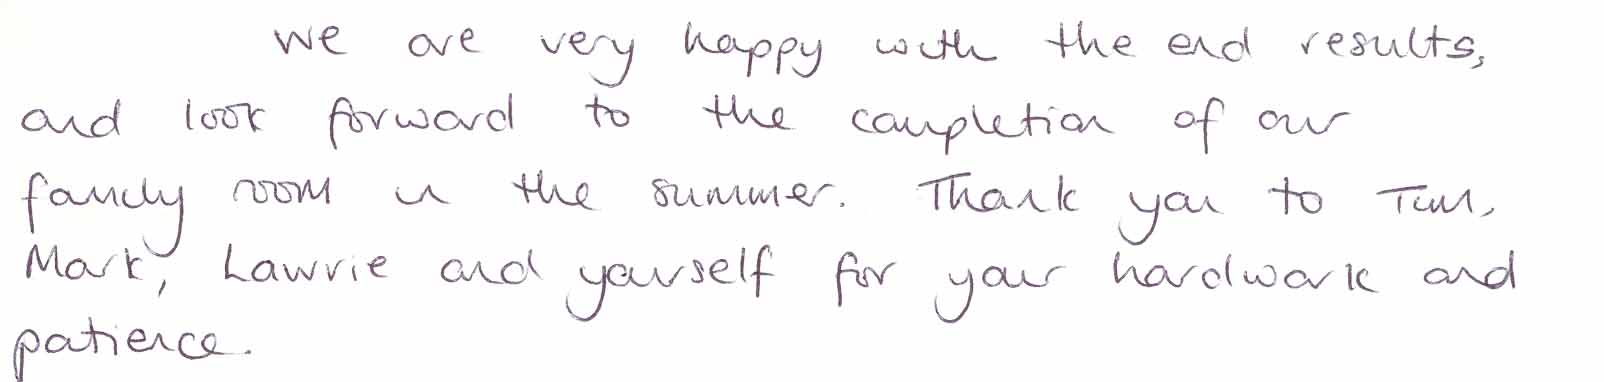 We are very happy with the end results,
and look forward to the completion of our
family room in the summer. Thank you to Tim,
Mark, Lawrie and yourself for your hardwork and
patience.